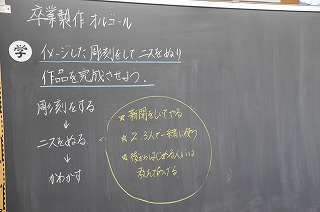 卒業製作 オルゴール
学 イメージした彫刻をしてニスをぬり
作品を完成させよう.
彫刻をする
↓
ニスをぬる
↓
かわかす
★新聞をしいてやる
★2.3人で一緒に使う
★後からはじめる人には
教えてあげる